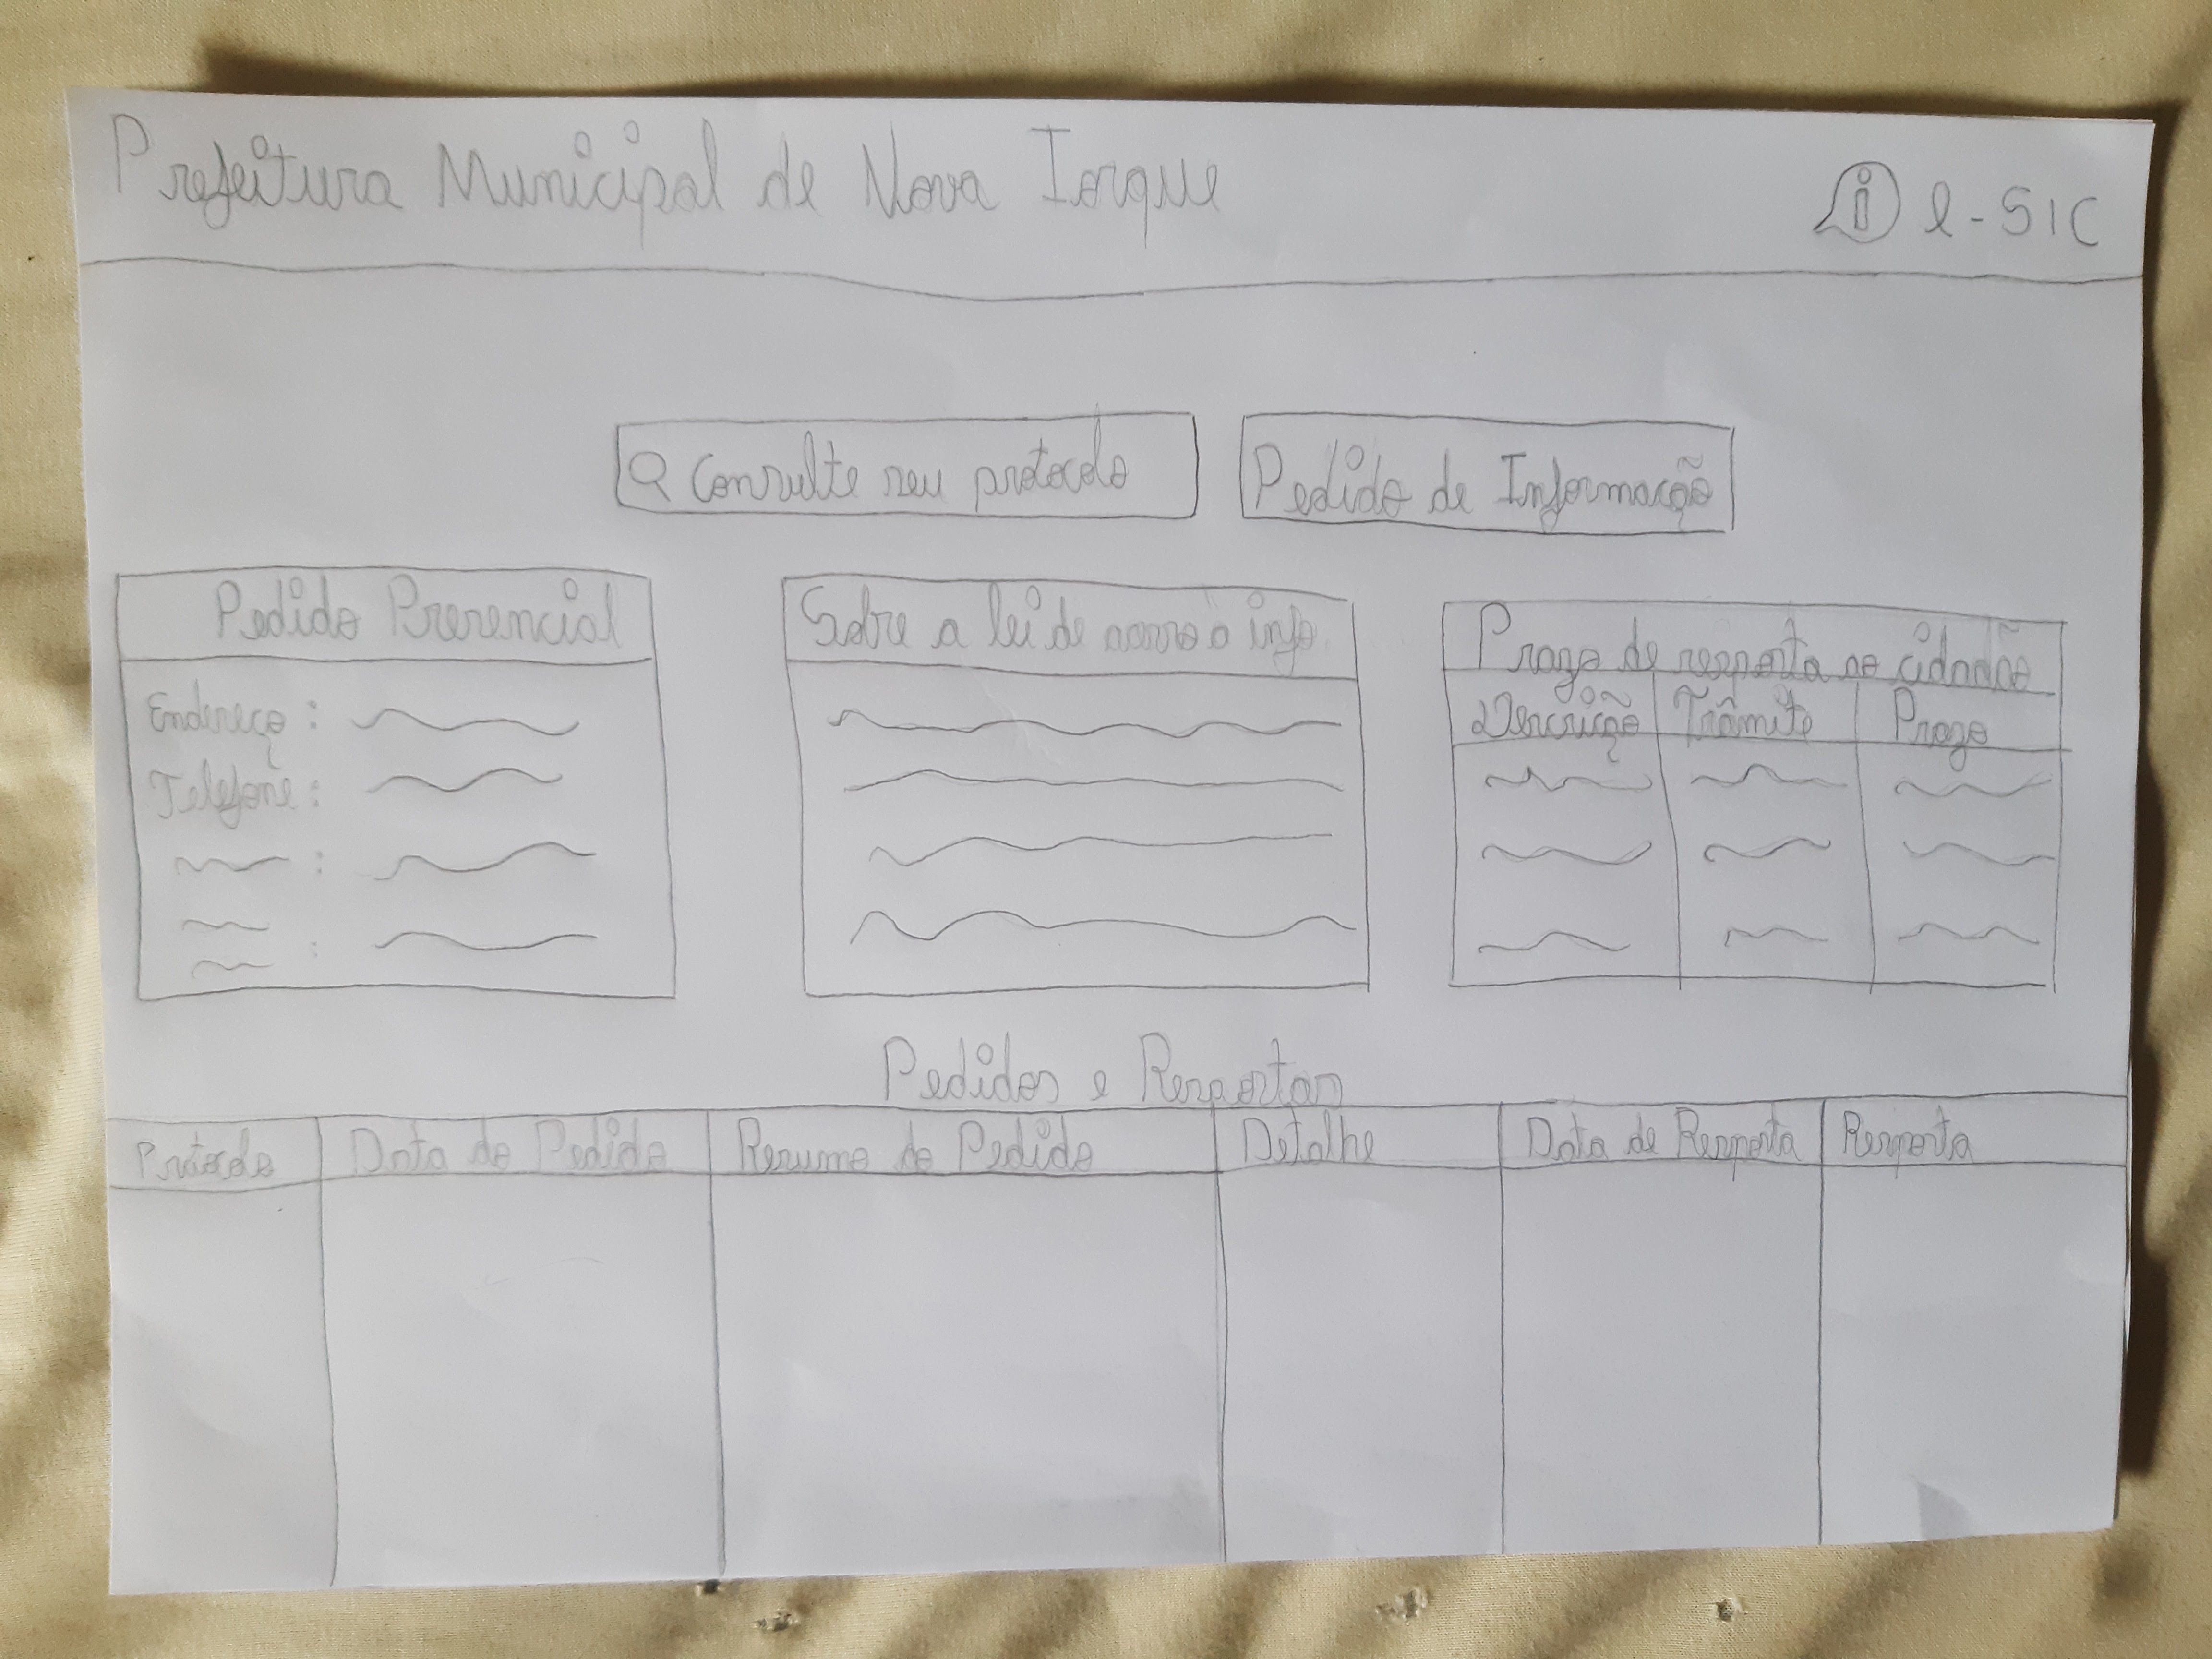 Prefeitura Municipal de Nova Iorque
i e-SIC
Consulte seu protocolo
Pedido de Informação
Pedido Presencial
Endereço:
Telefone:
Sobre a lei de acesso a info
Prazo de resposta ao cidadão
Descrição Trâmite Prazo
Pedidos e Respostas
Protocolo Data do Pedido Resumo do Pedido Detalhe Data de Resposta Resposta